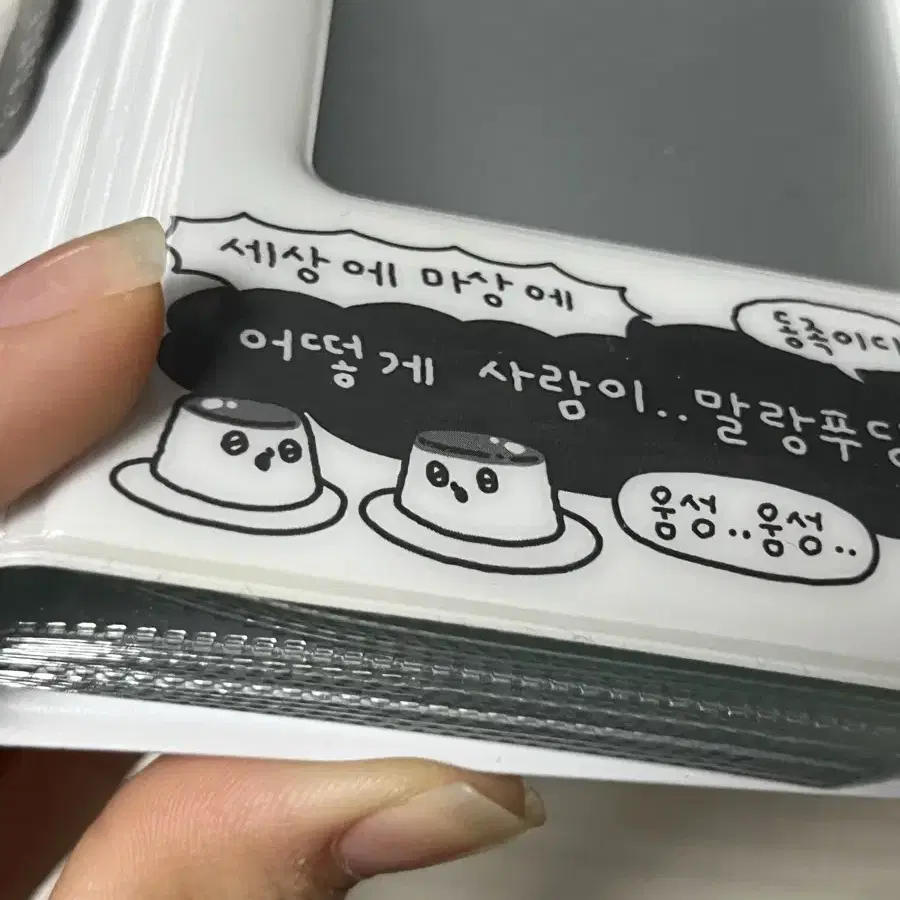 세상에 마상에
동족이다
어떻게 사람이..말랑푸딩
웅성..웅성..